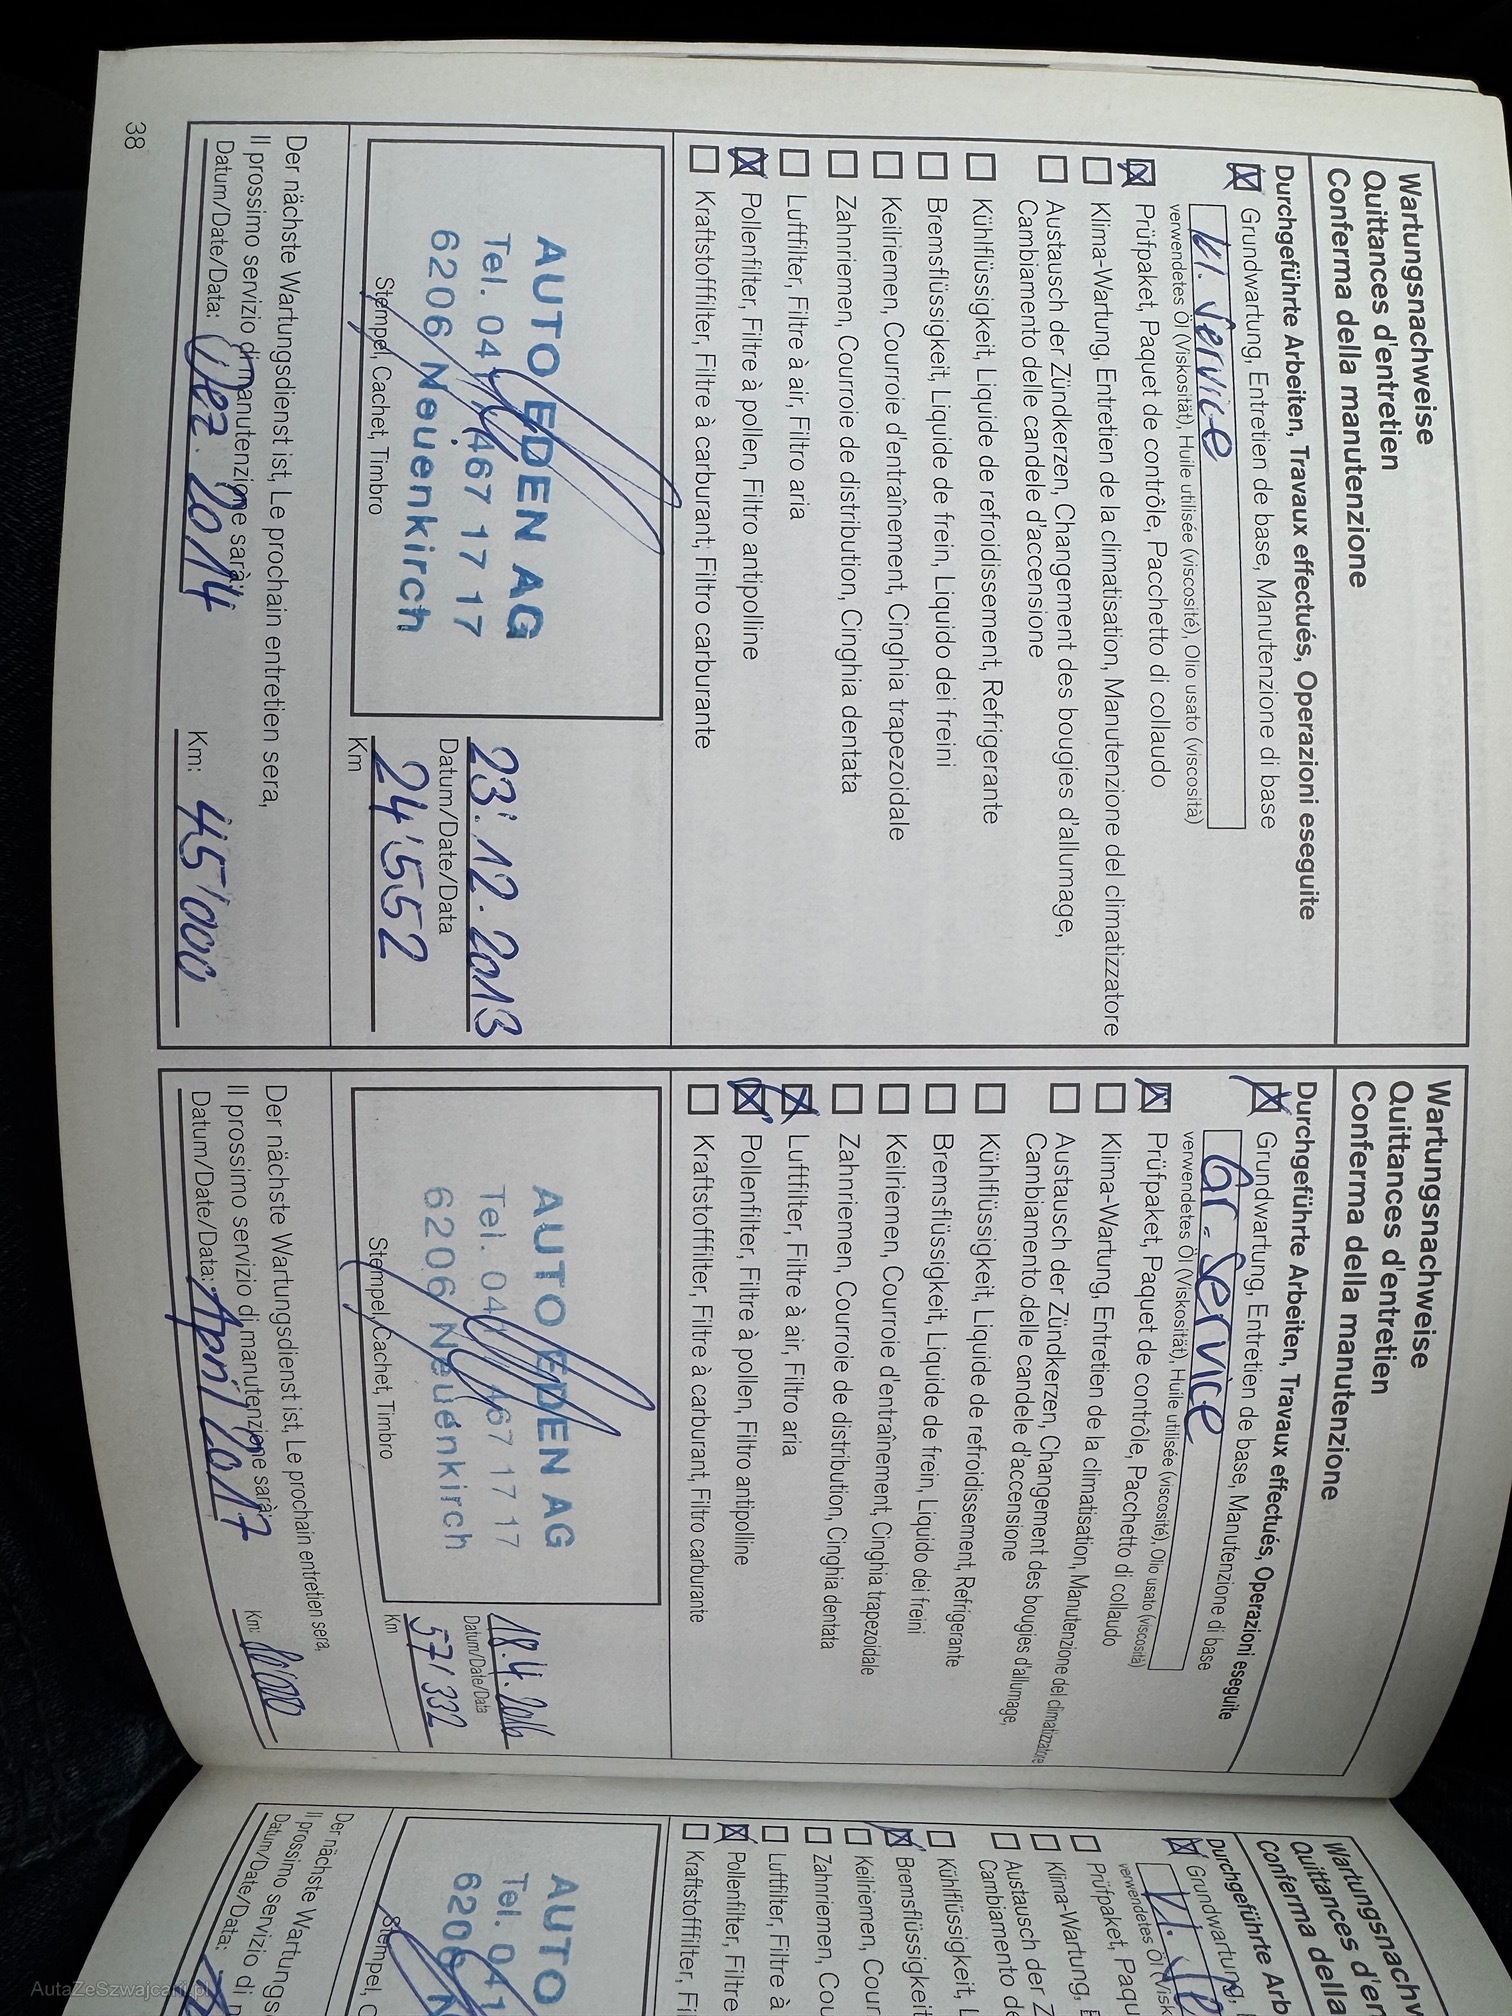 Wartungsnachweise
Quittances d'entretien
Conferma della manutenzione
Durchgeführte Arbeiten, Travaux effectués, Operazioni eseguite
Grundwartung, Entretien de base, Manutenzione di base
kl. Service
verwendetes Öl (Viskosität), Huile utilisée (viscosité), Olio usato (viscosità)
Prüfpaket, Paquet de contrôle, Pacchetto di collaudo
Klima-Wartung, Entretien de la climatisation, Manutenzione del climatizzatore
Austausch der Zündkerzen, Changement des bougies d'allumage,
Cambiamento delle candele d'accensione
Kühlflüssigkeit, Liquide de refroidissement, Refrigerante
Bremsflüssigkeit, Liquide de frein, Liquido dei freini
Keilriemen, Courroie d'entraînement, Cinghia trapezoidale
Zahnriemen, Courroie de distribution, Cinghia dentata
Luftfilter, Filtre à air, Filtro aria
Pollenfilter, Filtre à pollen, Filtro antipolline
Kraftstofffilter, Filtre à carburant, Filtro carburante
AUTO EDEN AG
Tel. 041 467 17 17
6206 Neuenkirch
Stempel, Cachet, Timbro
23.12.2013
Datum/Date/Data
24'552
Km
Der nächste Wartungsdienst ist, Le prochain entretien sera,
Il prossimo servizio di manutenzione sarà:
Datum/Date/Data: Dez. 2014 Km: 45'000
38
Wartungsnachweise
Quittances d'entretien
Conferma della manutenzione
Durchgeführte Arbeiten, Travaux effectués, Operazioni eseguite
Grundwartung, Entretien de base, Manutenzione di base
Gr. Service
verwendetes Öl (Viskosität), Huile utilisée (viscosité), Olio usato (viscosità)
Prüfpaket, Paquet de contrôle, Pacchetto di collaudo
Klima-Wartung, Entretien de la climatisation, Manutenzione del climatizzatore
Austausch der Zündkerzen, Changement des bougies d'allumage,
Cambiamento delle candele d'accensione
Kühlflüssigkeit, Liquide de refroidissement, Refrigerante
Bremsflüssigkeit, Liquide de frein, Liquido dei freini
Keilriemen, Courroie d'entraînement, Cinghia trapezoidale
Zahnriemen, Courroie de distribution, Cinghia dentata
Luftfilter, Filtre à air, Filtro aria
Pollenfilter, Filtre à pollen, Filtro antipolline
Kraftstofffilter, Filtre à carburant, Filtro carburante
AUTO EDEN AG
Tel. 041 467 17 17
6206 Neuenkirch
Stempel, Cachet, Timbro
18.4.2016
Datum/Date/Data
57'332
Km
Der nächste Wartungsdienst ist, Le prochain entretien sera,
Il prossimo servizio di manutenzione sarà:
Datum/Date/Data: April 2017 Km:
Wartungsnachw
Quittances d'en
Conferma della
Durchgeführte Arb
Grundwartung,
verwendetes Öl (Visk
Prüfpaket, Paqu
Klima-Wartung, E
Austausch der Z
Cambiamento de
Kühlflüssigkeit, L
Bremsflüssigkeit
Keilriemen, Cour
Zahnriemen, Cou
Luftfilter, Filtre à
Pollenfilter, Filtre
Kraftstofffilter, Fi
AUTO
Tel. 041
6206 N
Stempel, C
Der nächste Wartungs
Il prossimo servizio di m
Datum/Date/Data:
AutaZeSzwajcarii.pl